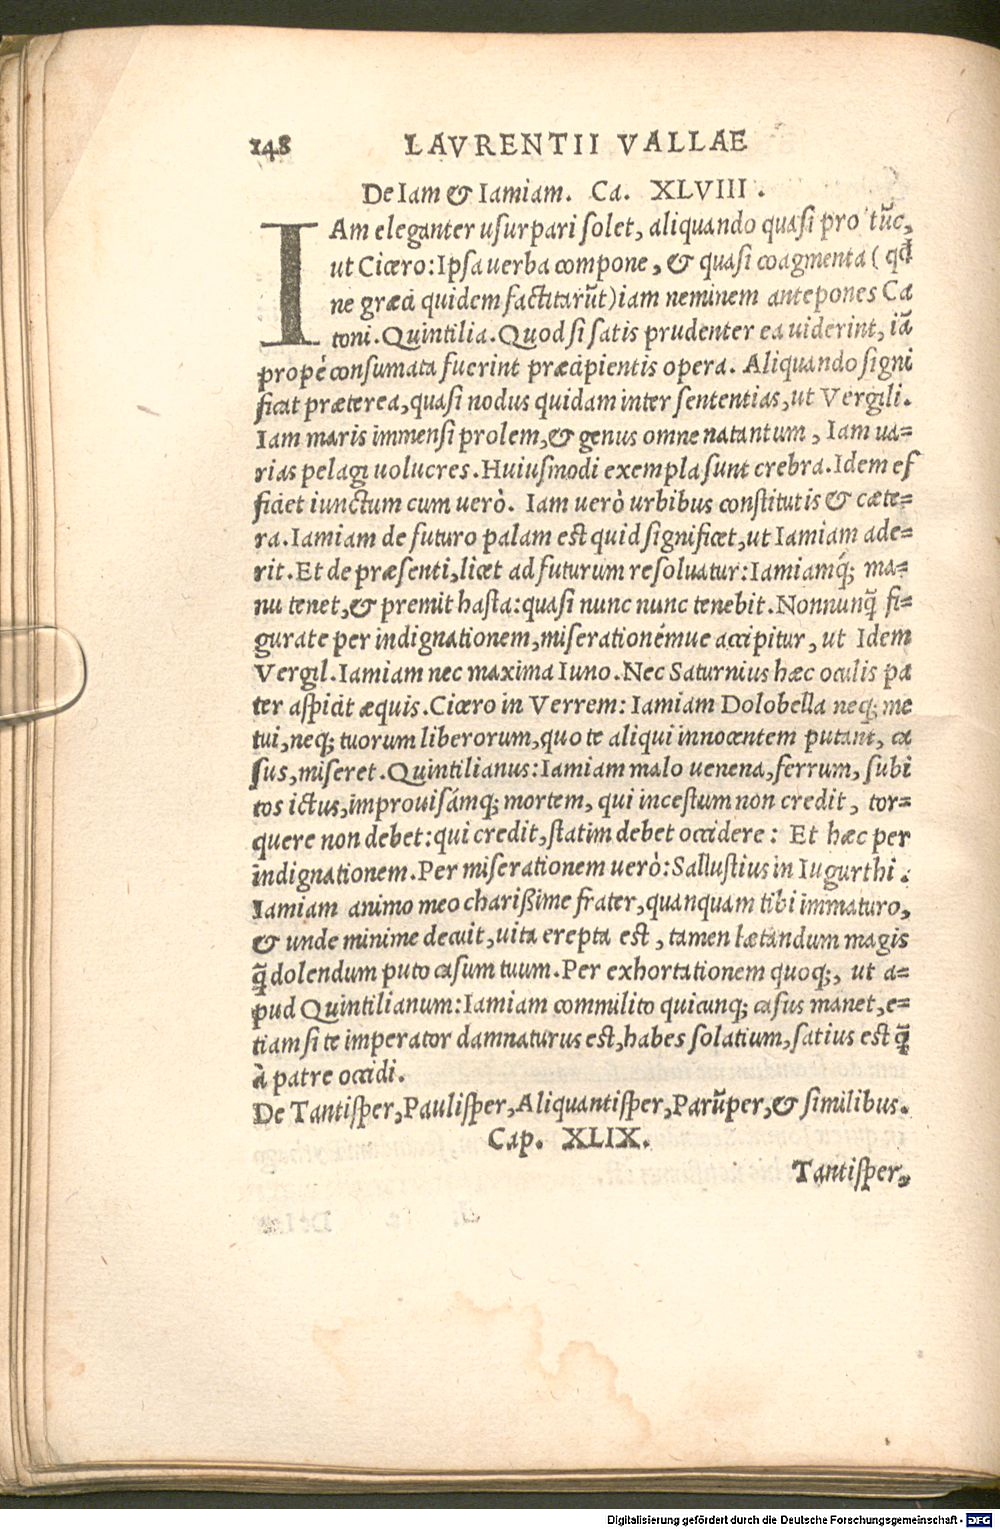 148 LAVRENTII VALLAE
De Iam & Iamiam. Ca. XLVIII.
IAm eleganter usurpari solet, aliquando quasi pro tũc,
ut Cicero: Ipsa verba compone, & quasi coagmenta ( qđ
ne græci quidem factitarũt) iam neminem antepones Ca
toni. Quintilia. Quod si satis prudenter ea uiderint, iã
propè consumata fuerint præcipientis opera. Aliquando signi
ficat præterea, quasi nodus quidam inter sententias, ut Vergili.
Iam maris immensi prolem, & genus omne natantum, Iam ua=
rias pelagi uolucres. Huiusmodi exempla sunt crebra. Idem ef
ficiet iunctum cum uerò. Iam uerò urbibus constitutis & cæte=
ra. Iamiam de futuro palam est quid significet, ut Iamiam ade=
rit. Et de præsenti, licet ad futurum resoluatur: Iamiamq́; ma=
nu tenet, & premit hasta: quasi nunc nunc tenebit. Nonnunq̃ fi=
gurate per indignationem, miserationémue accipitur, ut Idem
Vergil. Iamiam nec maxima Iuno. Nec Saturnius hæc oculis pa
ter aspicit æquis. Cicero in Verrem: Iamiam Dolobella neq; me
tui, neq; tuorum liberorum, quo te aliqui innocentem putant, ca
sus, miseret. Quintilianus: Iamiam malo uenena, ferrum, subi
tos ictus, improuisámq; mortem, qui incestum non credit, tor=
quere non debet: qui credit, statim debet occidere: Et hæc per
indignationem. Per miserationem uerò: Sallustius in Iugurthi.
Iamiam animo meo charißime frater, quanquam tibi immaturo,
& unde minime decuit, uita erepta est, tamen lætandum magis
q̃ dolendum puto casum tuum. Per exhortationem quoq;, ut a=
pud Quintilianum: Iamiam commilito quicunq; casus manet, e=
tiam si te imperator damnaturus est, habes solatium, satius est q̃
à patre occidi.
De Tantisper, Paulisper, Aliquantisper, Parũper, & similibus.
Cap. XLIX.
Tantisper,
Digitalisierung gefördert durch die Deutsche Forschungsgemeinschaft - DFG